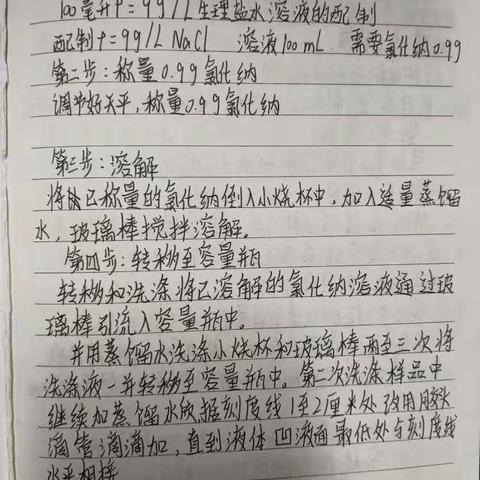 100毫升ρ=9g/L生理盐水溶液的配制
配制ρ=9g/L NaCl 溶液100mL 需要氯化纳0.9g
第二步:称量0.9g氯化纳
调节好天平,称量0.9g氯化纳
第三步:溶解
将已称量的氯化纳倒入小烧杯中,加入适量蒸馏
水,玻璃棒搅拌溶解。
第四步:转移至容量瓶
转移和洗涤将已溶解的氯化纳溶液通过玻
璃棒引流入容量瓶中。
并用蒸馏水洗涤小烧杯和玻璃棒两至三次将
洗涤液一并转移至容量瓶中。第二次洗涤样品中
继续加蒸馏水放据刻度线1至2厘米处改用胶头
滴管滴滴加,直到液体凹液面最低处与刻度线
水平相接